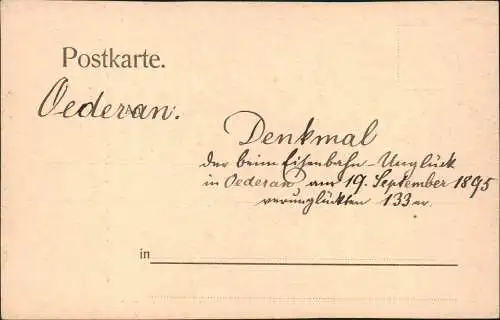 Postkarte.
Oederan.
Denkmal
der beim Eisenbahn-Unglück
in Oederan am 19. September 1895
verunglückten 133er.
in